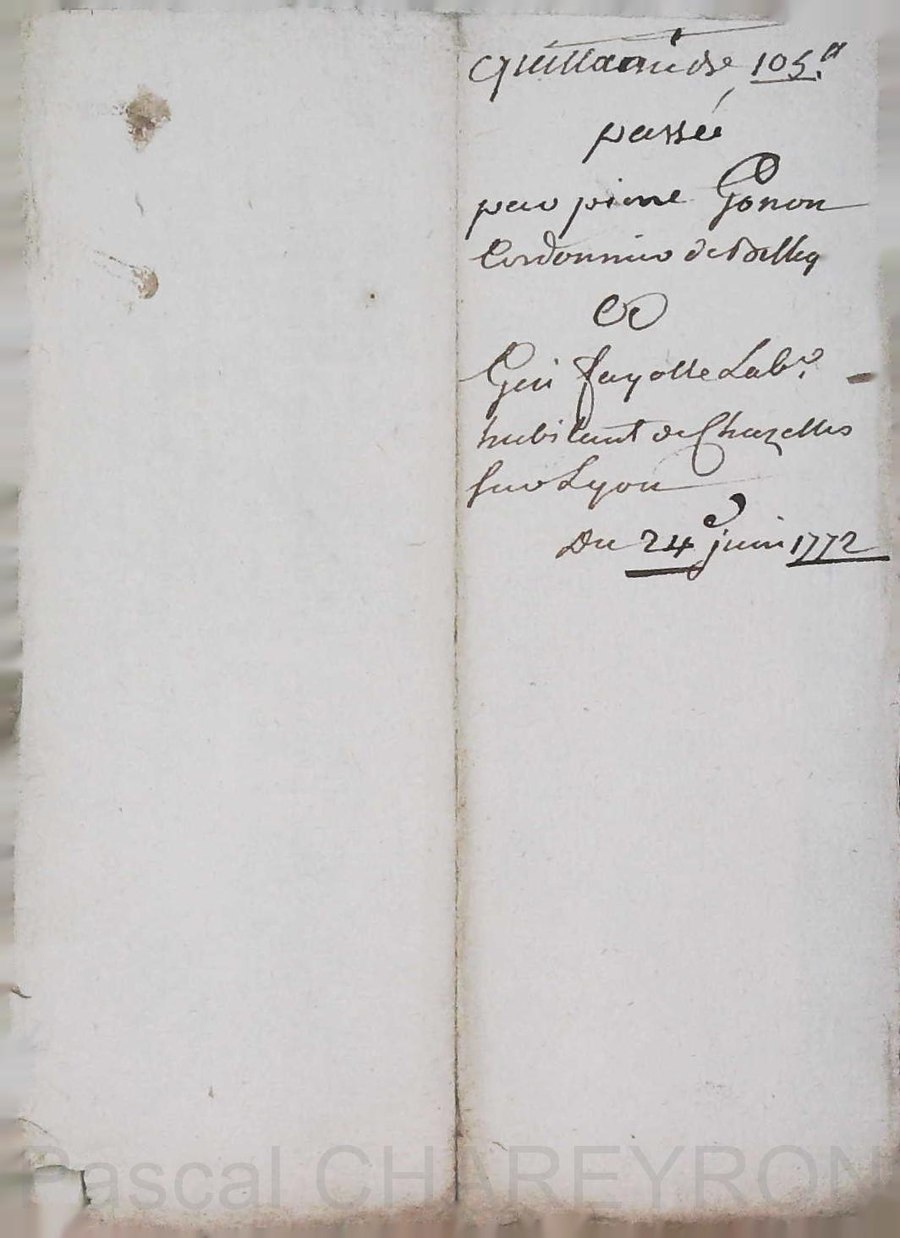 Quittance de 105.#
passée
par pierre Gonon
Cordonnier de
Et
fayolle Lab.r
habitant de Chazelles
sur Lyon
Du 24e juin 1772
Pascal CHAREYRON